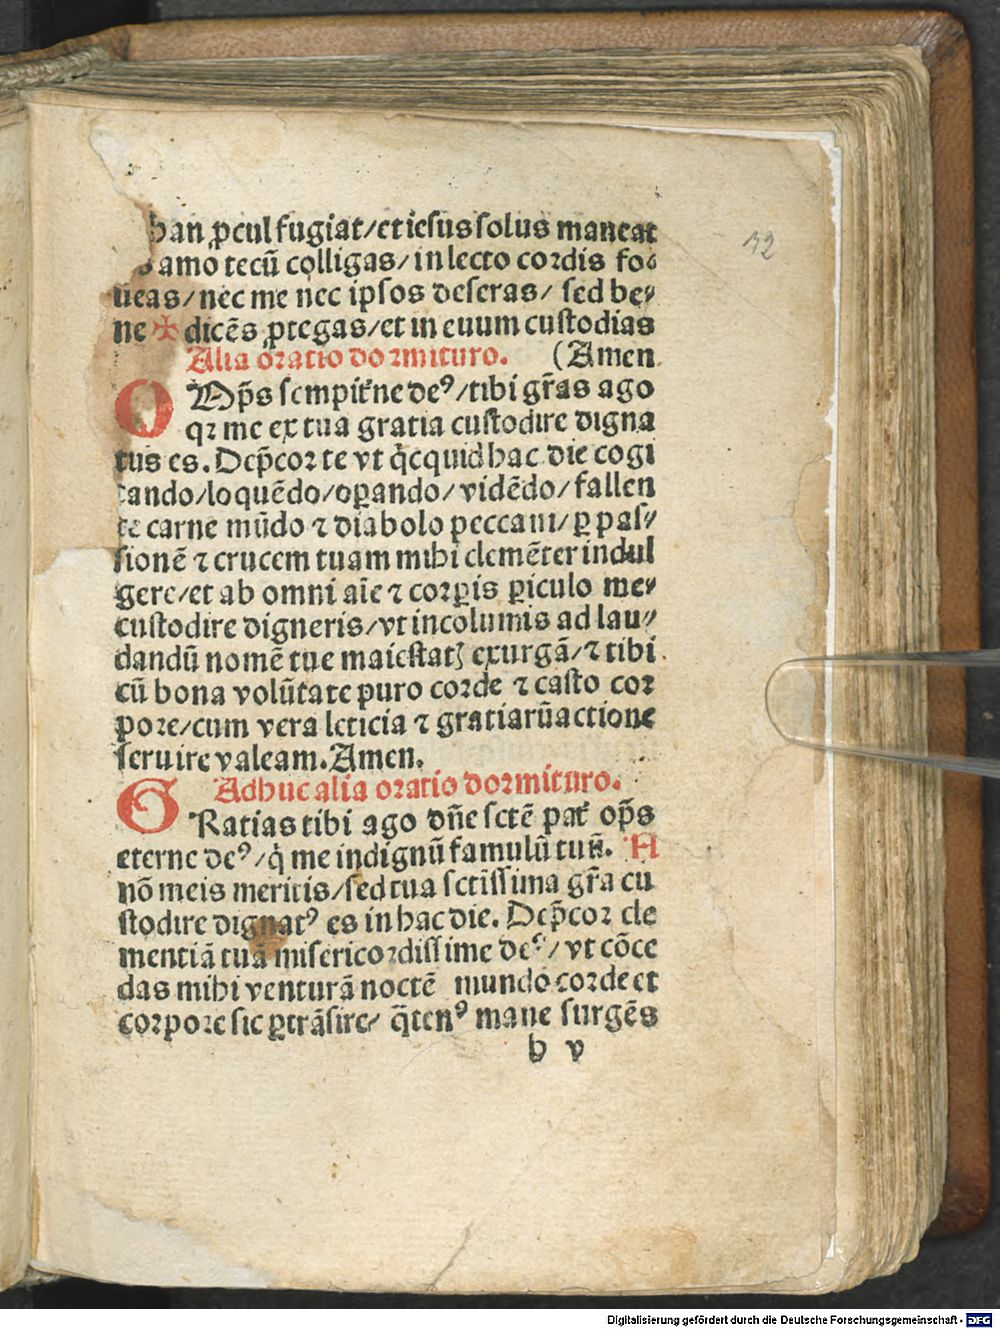 han ꝓcul fugiat/et iesus solus maneat
amo tecū colligas/in lecto cordis fo⸗
ueas/nec me nec ipsos deseras/ sed be⸗
ne ✠ dicēs ꝓtegas/et in euum custodias
Alia oratio dormituro. (Amen
O Mp̄s sempit̄ne deꝰ/tibi gr̄as ago
qꝛ me ex tua gratia custodire digna
tus es. Dep̄cor te vt q̇cquid hac die cogi
tando/loquēdo/oꝑando/vidēdo/fallen
te carne mūdo ⁊ diabolo peccaui/ꝑ pas⸗
sionē ⁊ crucem tuam mihi clemēter indul
gere/et ab omni aīe ⁊ corꝑis ꝑiculo me⸗
custodire digneris/vt incolumis ad lau⸗
dandū nomē tue maiestatꝫ exurgā/⁊ tibi
cū bona volūtate puro corde ⁊ casto cor
pore/cum vera leticia ⁊ gratiarūactione
seruire valeam. Amen.
Adhuc alia oratio dormituro.
G Ratias tibi ago dn̄e sctē pat̄ op̄s
eterne deꝰ/q̇ me indignū famulū tuū. 
nō meis meritis/sed tua sctissima gr̄a cu
stodire dignatꝰ es in hac die. Dep̄cor cle
mentiā tuā misericordissime deꝰ/vt cōce
das mihi venturā noctē mundo corde et
corpore sic ꝑtrāsire/ q̄tenꝰ mane surgēs
b v
Digitalisierung gefördert durch die Deutsche Forschungsgemeinschaft - DFG